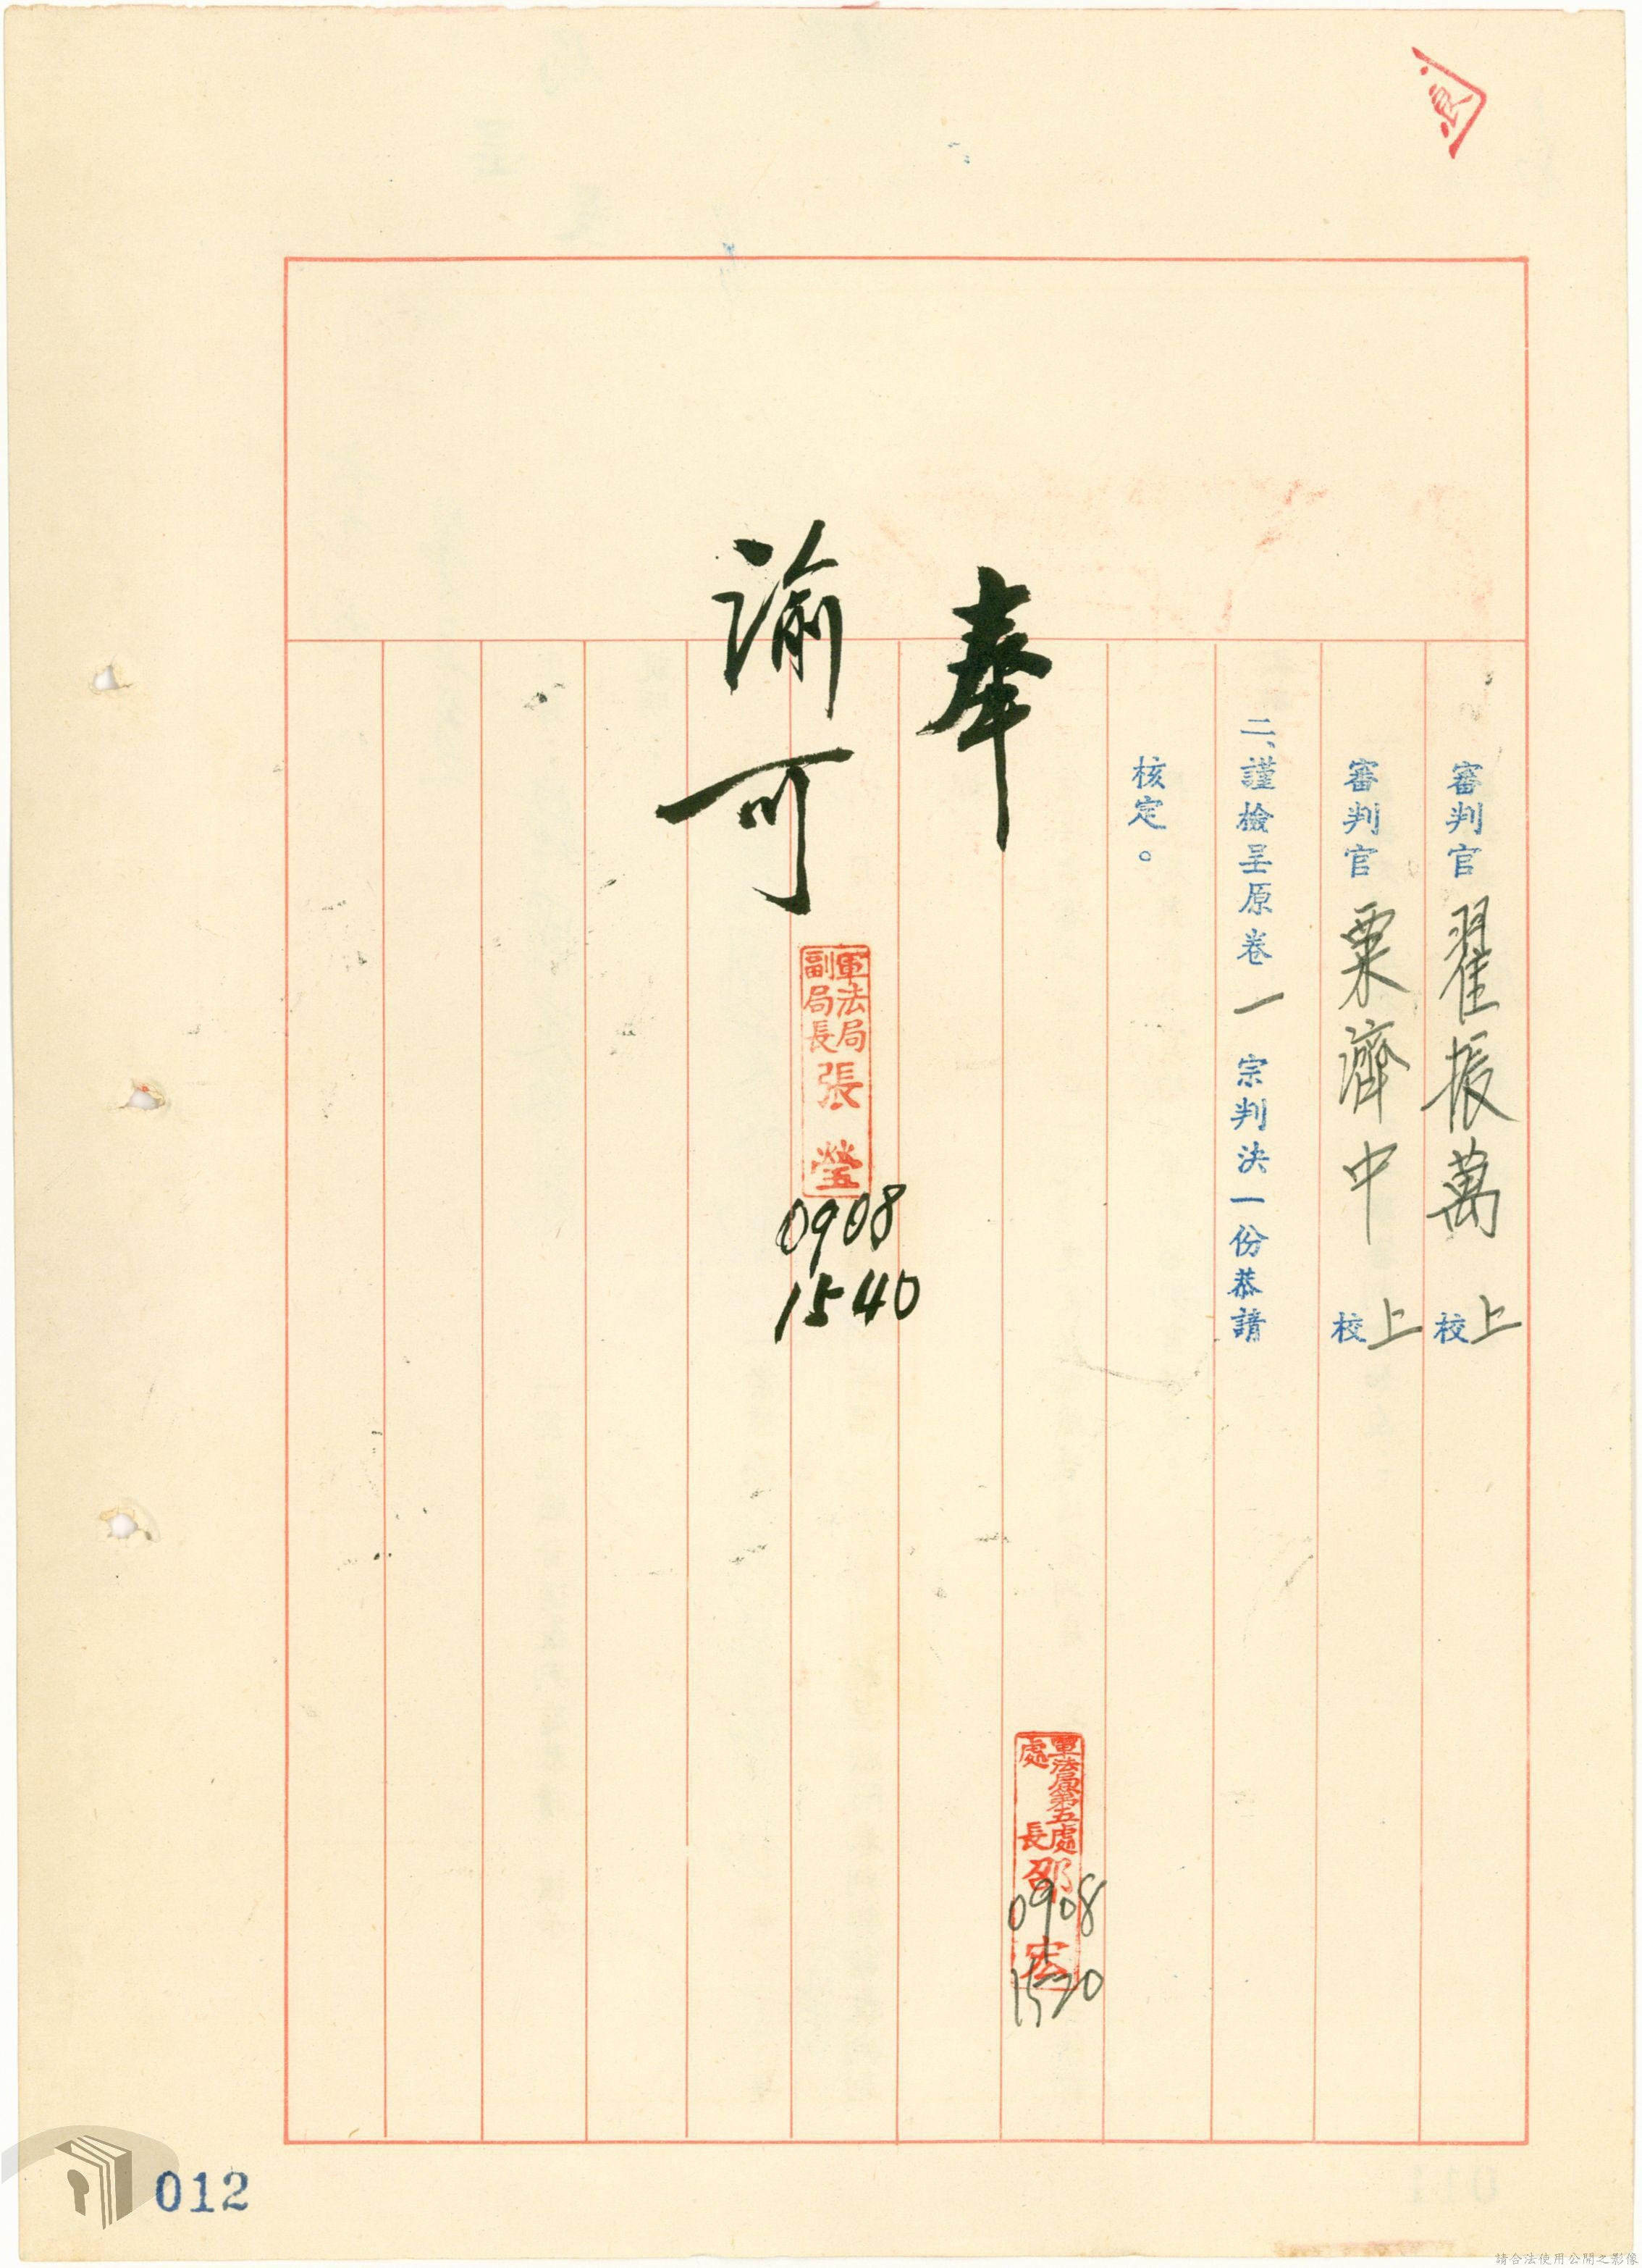 審判官 翟振萬 上校
審判官 粟濟中 上校
二、謹檢呈原卷一宗判決一份恭請
核定。
奉
諭可
軍法局
副局長 張瑩
0908
1540
軍法局第五處
處長 邵宏
0908
1520
012
請合法使用公開之影像